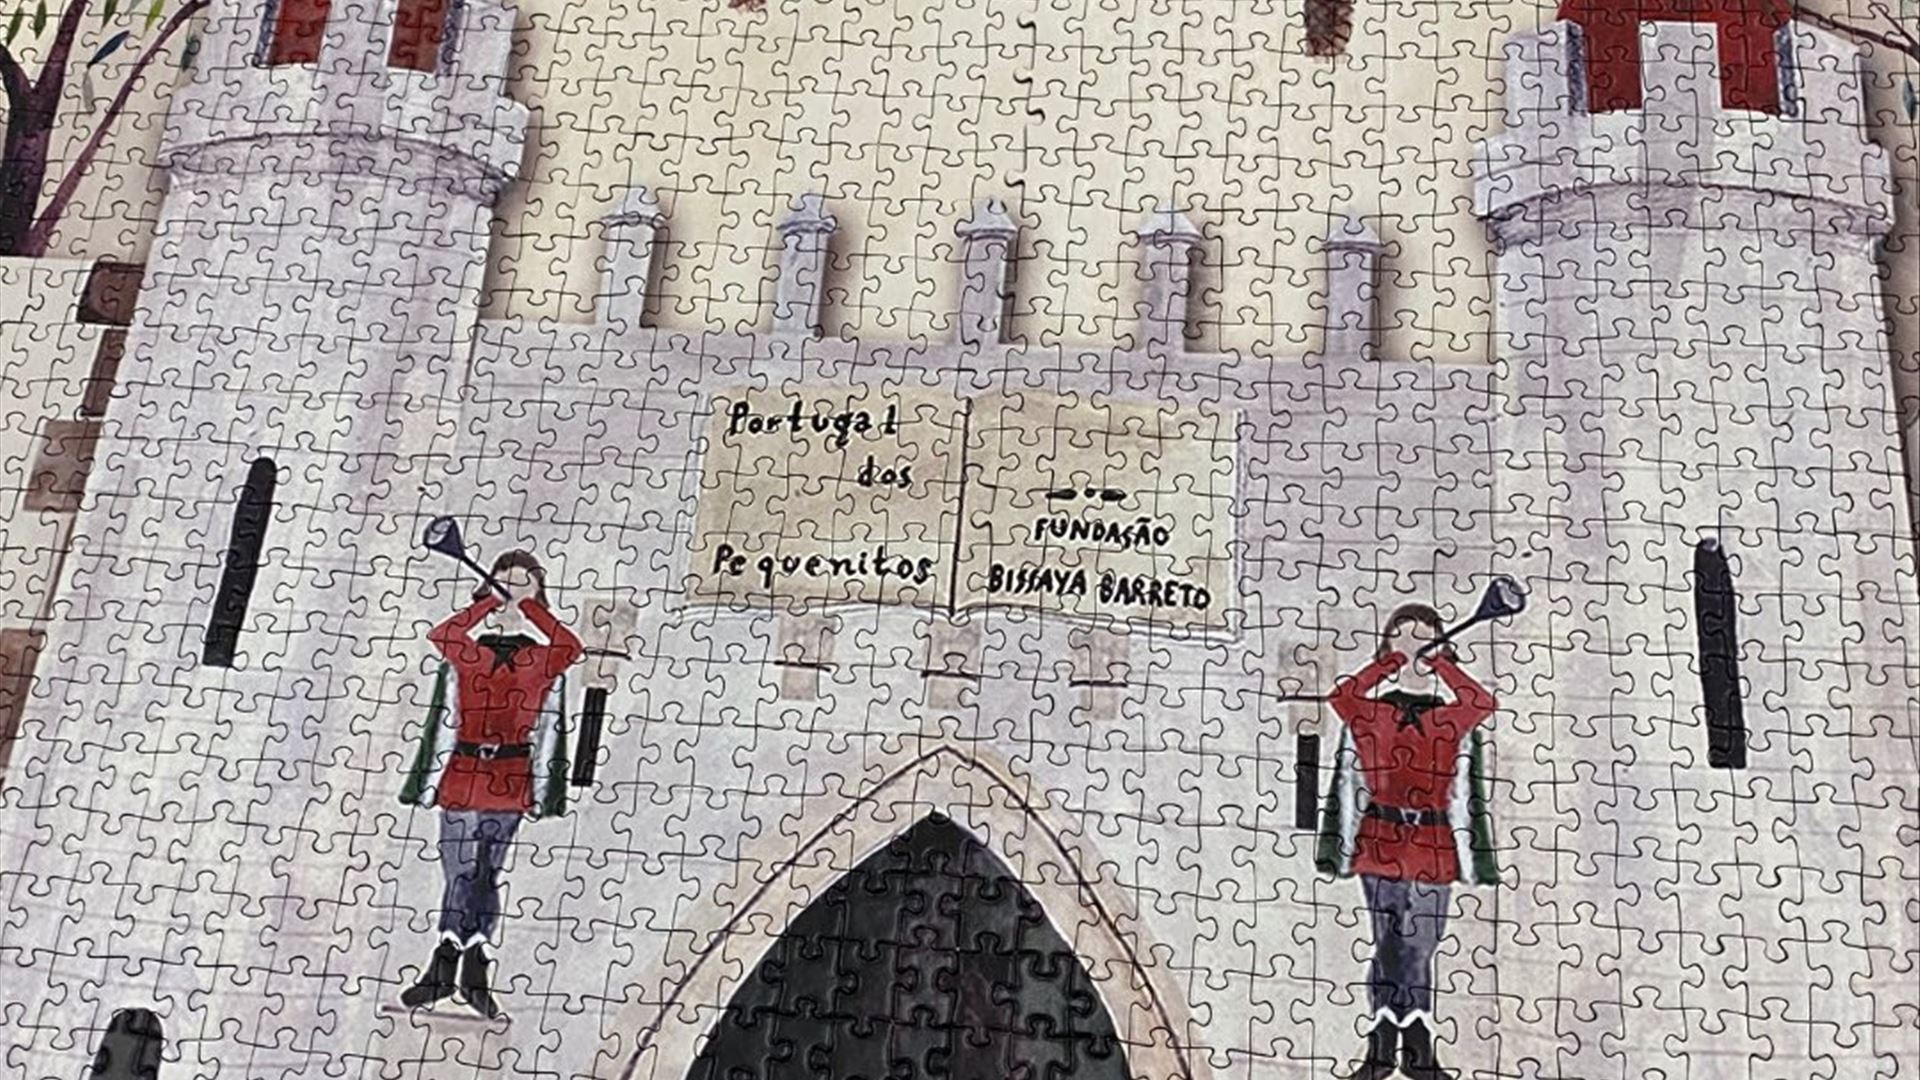 Portugal
dos
Pequenitos
FUNDAÇÃO
BISSAYA BARRETO